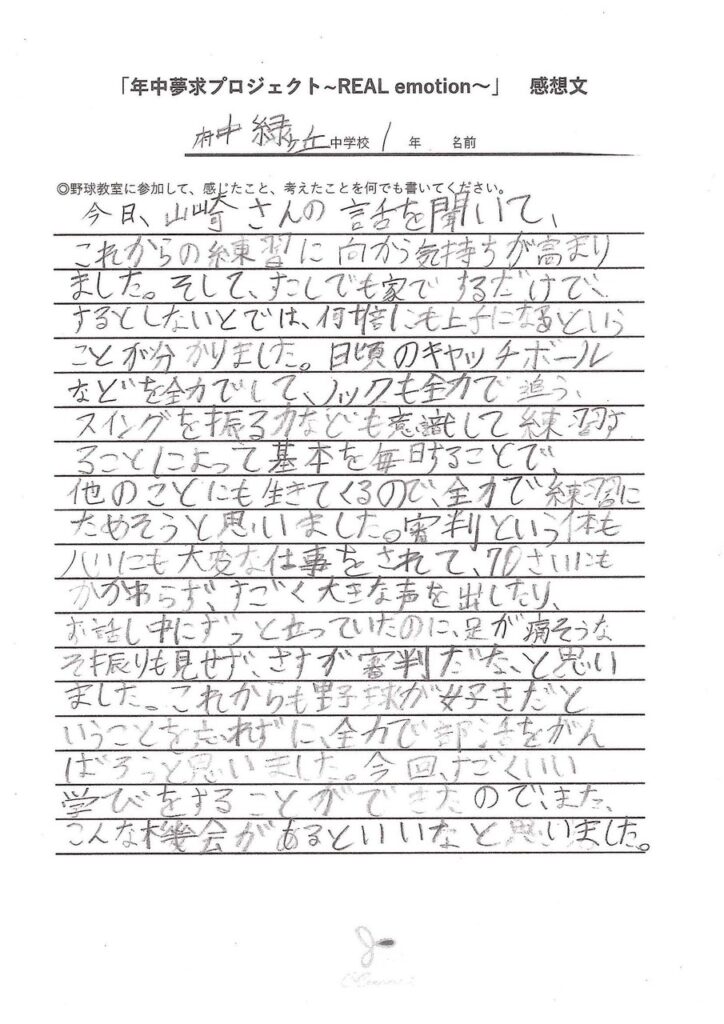 「年中夢求プロジェクト~REAL emotion～」 感想文
府中 緑ヶ丘中学校 1 年 名前
◎野球教室に参加して、感じたこと、考えたことを何でも書いてください。
今日、山崎さんの話を聞いて、
これからの練習に向かう気持ちが高まり
ました。そして、すこしでも家でするだけで、
するとしないとでは、何倍にも上手になるという
ことが分かりました。日頃のキャッチボール
などを全力でして、ノックも全力で追う、
スイングを振る力なども意識して練習す
ることによって基本を毎日することで、
他のことにも生きてくるので、全力で練習に
ためそうと思いました。審判という体も
心にも大変な仕事をされて、70さいにも
かかわらず、すごく大きな声を出したり、
お話し中にずっと立っていたのに、足が痛そうな
そ振りも見せず、さすが審判だな、と思い
ました。これからも野球が好きだと
いうことを忘れずに、全力で部活をがん
ばろうと思いました。今回、すごくいい
学びをすることができたので、また、
こんな機会があるといいなと思いました。